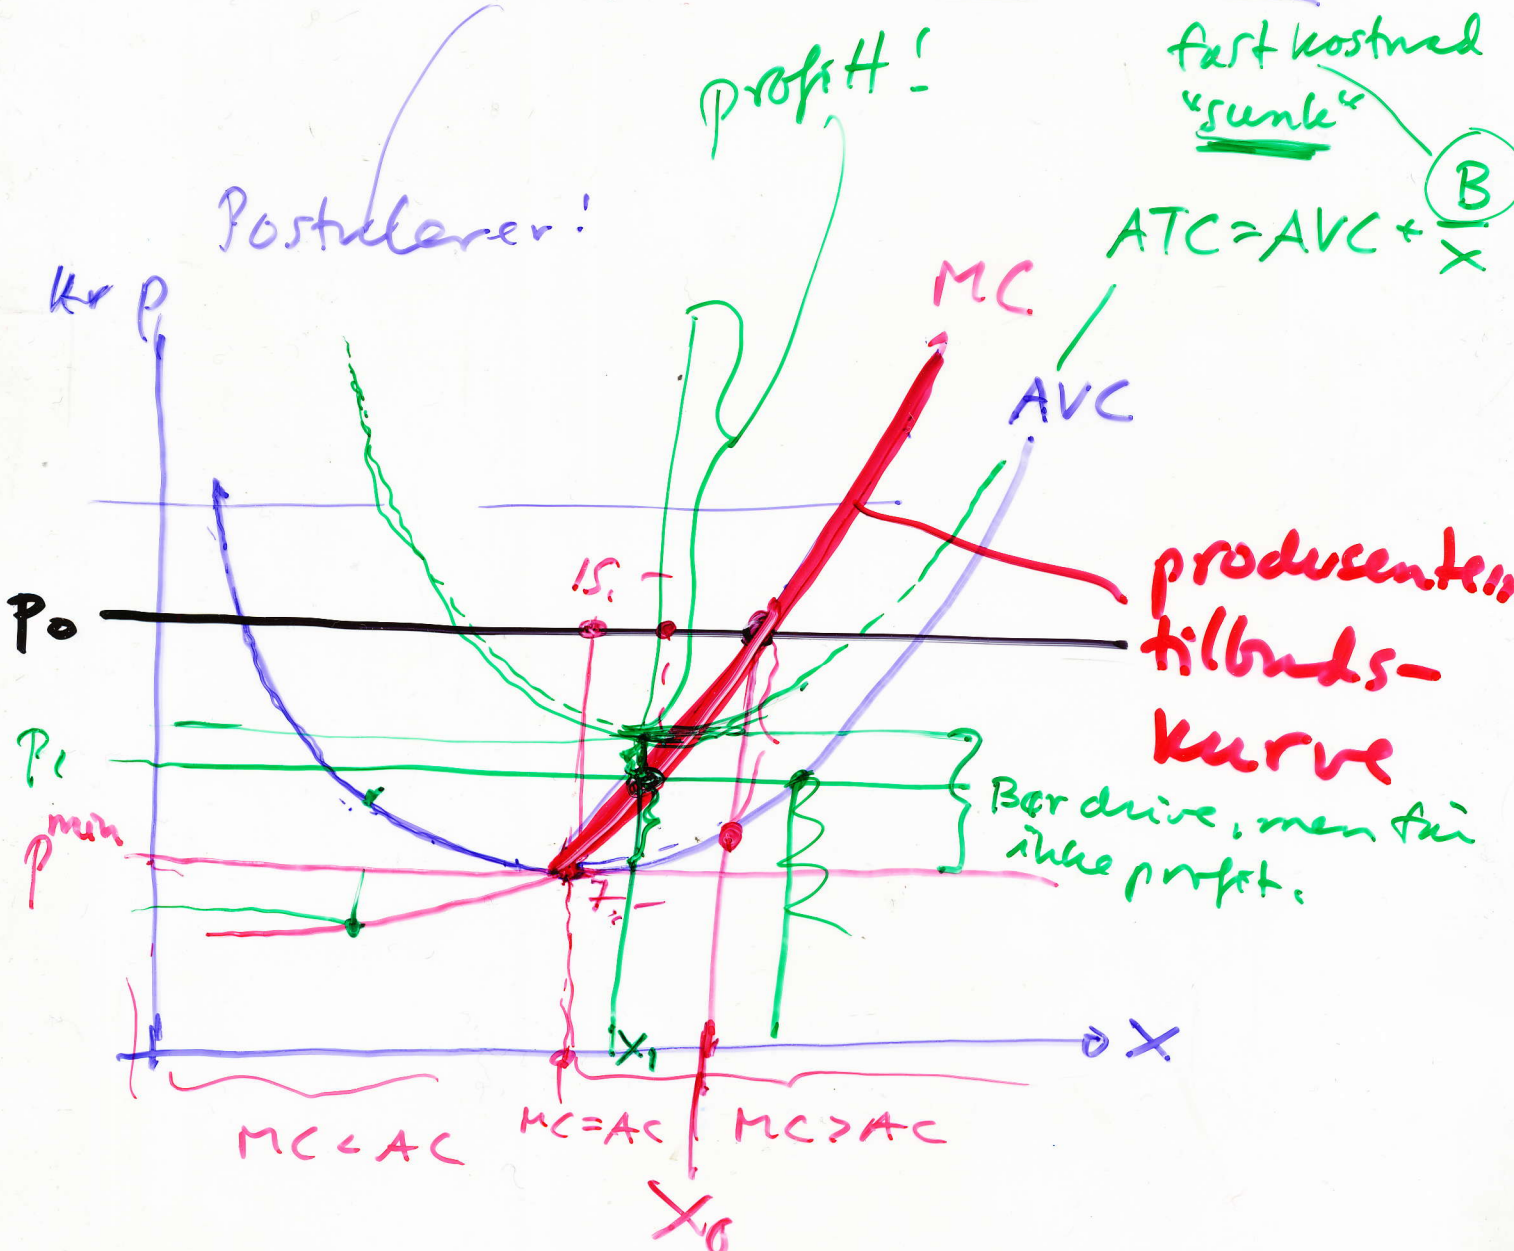 fast kostnad
"sunk"
profitt!
B
Postulerer!
ATC = AVC + B/X
Kr P
MC
AVC
15,-
P₀
produsentens
tilbuds-
kurve
P₁
Bør drive, men får
ikke profit.
P^min
7,-
X₁
X
MC < AC
MC = AC
MC > AC
X₀